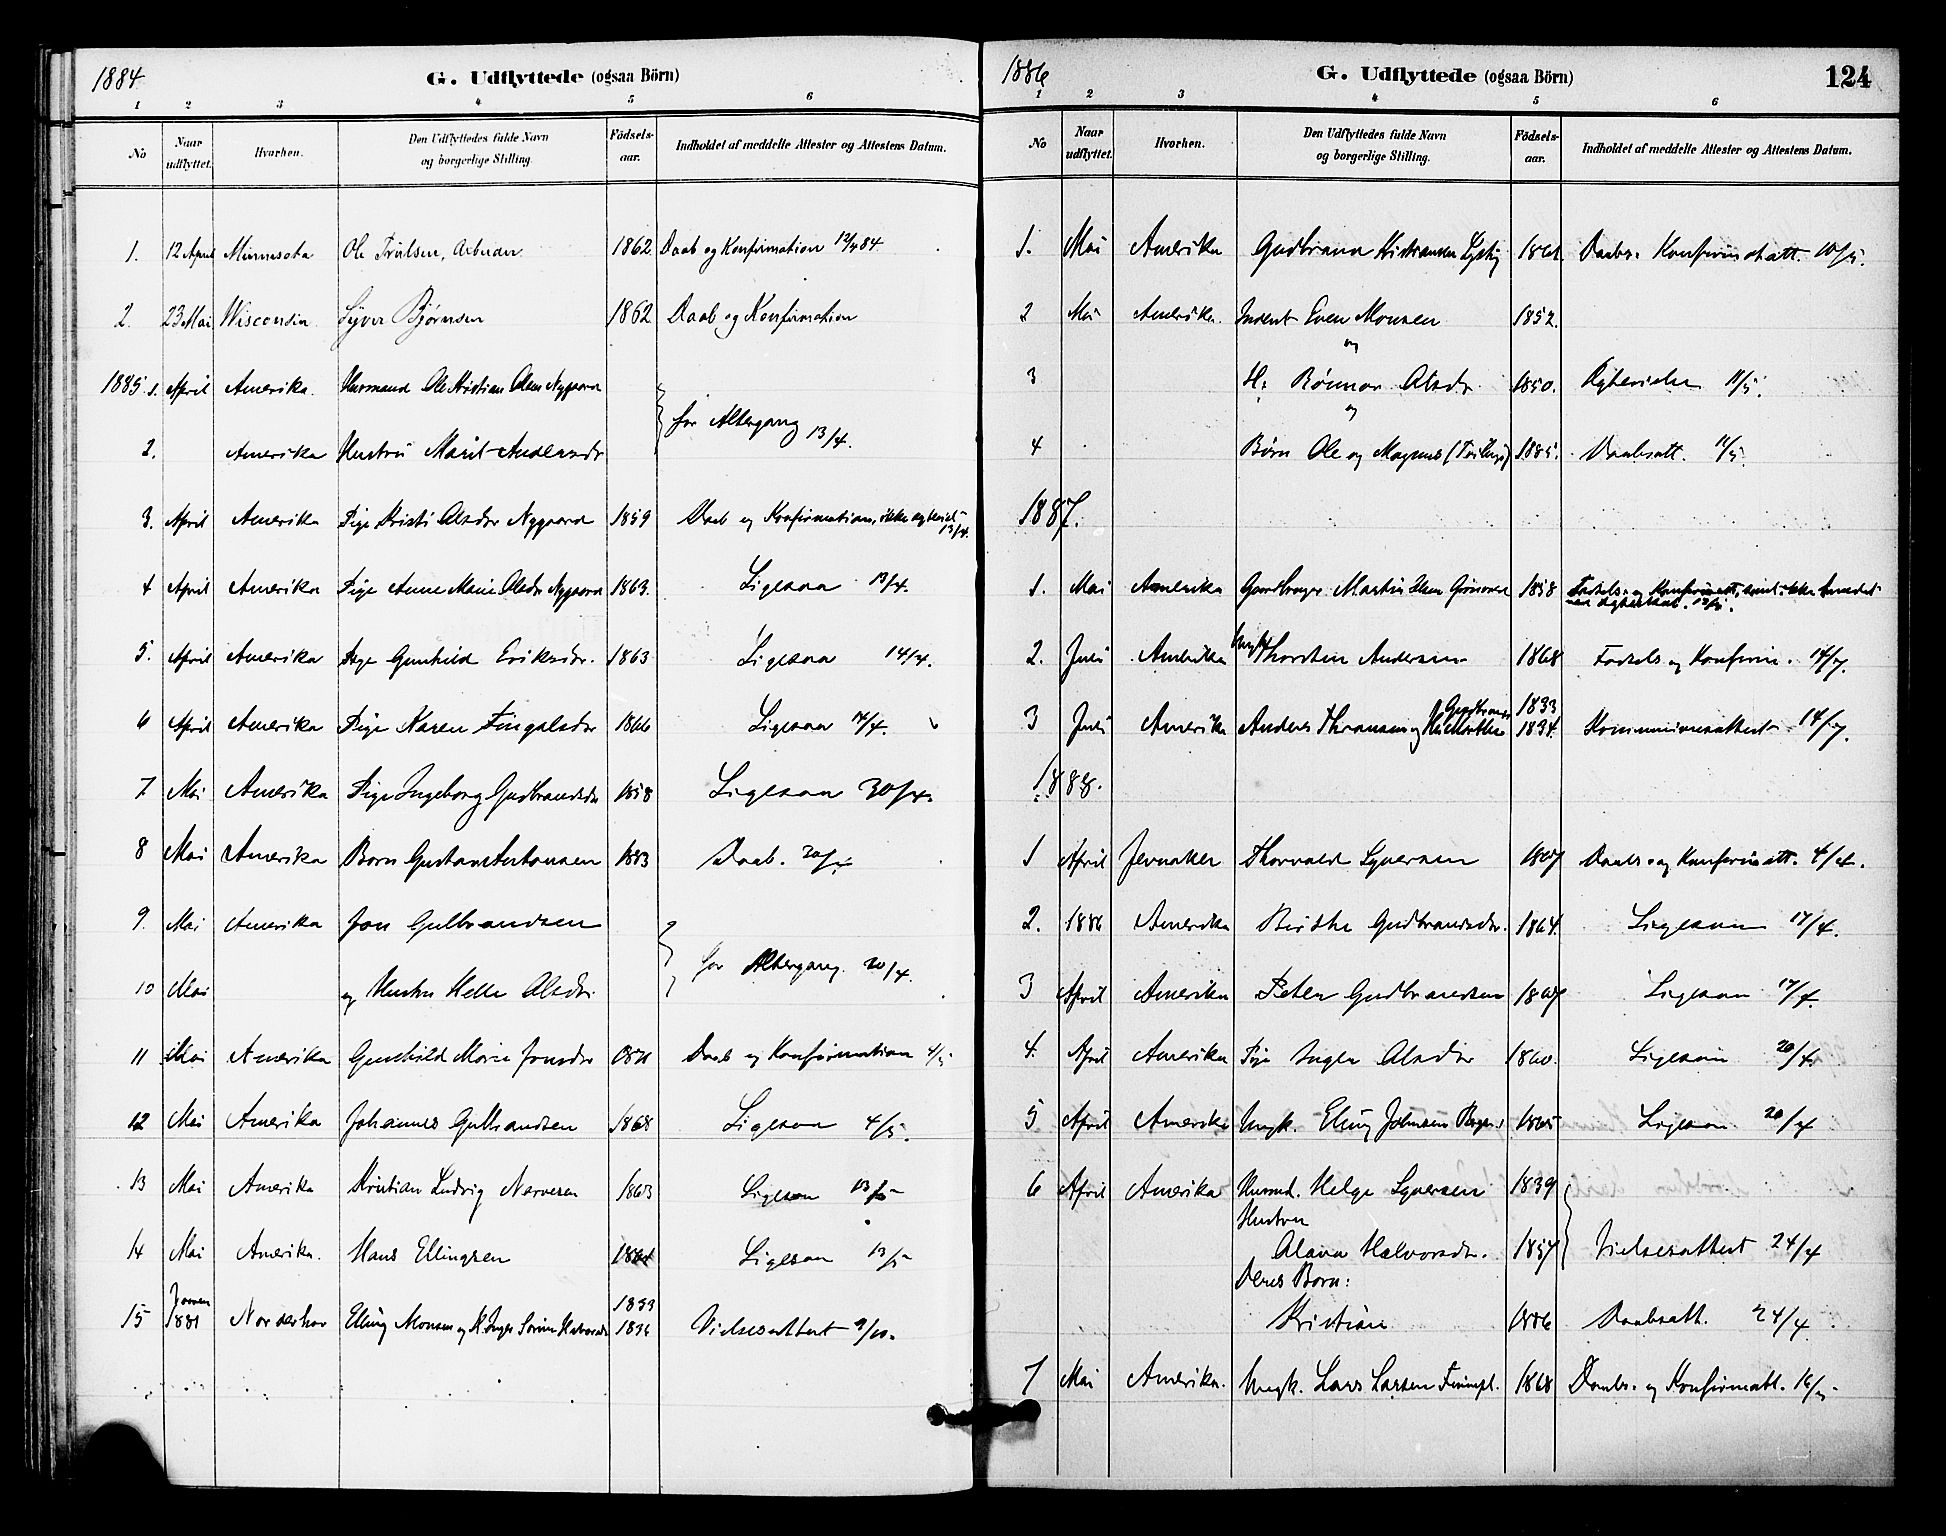 1884
G. Udflyttede (ogsaa Börn)
1 2 3 4 5 6
No Naar udflyttet. Hvorhen. Den Udflyttedes fulde Navn og borgerlige Stilling. Födsels-aar. Indholdet af meddelte Attester og Attestens Datum.
1. 12 April Minnesota Ole Trulsen, Arbeider 1862 Daab og Konfirmation 12/4 84
2. 23 Mai Wisconsin Syver Bjørnsen 1862 Daab og Konfirmation
1885. 1. April Amerika. Husmand Ole Kristian Olsen Nygaard
for Altergang 13/4.
2. Amerika Hustru Marit
3. April Amerika Pige Kristi Olsdr Nygaard 1859 Daab og Konfirmation, ikke 13/4.
4 April Amerika Pige Anne Marie Olsdr Nygaard 1863. Ligesaa 13/4.
5. April Amerika Pige Gunhild Eriksdr. 1863 Ligesaa 14/4.
6 April Amerika Pige Karen Fingalsdr 1866 Ligesaa 14/4.
7 Mai Amerika Pige Ingeborg Gudbrandsdr 1858 Ligesaa 30/4.
8 Mai Amerika Barn Gustav 1883 Daab. 30/4
9. Mai Amerika Jon Gulbrandsen
for Altergang. 30/4.
10 Mai og Hustru Helle Olsdr.
11 Mai Amerika Gunhild Marie Jonsdr 1871 Daab og Konfirmation 4/5
12 Mai Amerika Johannes Gulbrandsen 1868 Ligesaa 4/5.
13 Mai Amerika Kristian Ludvig Narvesen 1863 Ligesaa 13/5
14 Mai Amerika. Hans Ellingsen Ligesaa 13/5
15 1881 Norderhov Elling Monsen og H. Inger 1833 1836 Vielsesattest 9/10.
1886
G. Udflyttede (ogsaa Börn)
124
1 2 3 4 5 6
No Naar udflyttet. Hvorhen. Den Udflyttedes fulde Navn og borgerlige Stilling. Födsels-aar. Indholdet af meddelte Attester og Attestens Datum.
1. Mai Amerika Gudbrand 1861. Daabs- Konfirmatatt. 10/5.
2 Mai Amerika. Even Monsen 1852.
og
3 H: Rønnov Olsdr 1850. 11/5.
og
4 Børn Ole og Magnus (Tvillinger) 1885. Daabsatt. 11/5.
1887.
1. Mai Amerika Gaardbruger Martin 1858 Fødsels- og ikke
2. Juli Amerika Ungk Thorsten Andersen 1868 Fødsels og Konfirm. 14/7.
3 Juli Amerika Anders Thransen og 1833 1834. Kommunionsattest 14/7.
1888.
1 April Jevnaker Thorvald Syversen 1867 Daabs- og Konfirmatt. 4/4.
2. 1886 Amerika Birthe Gudbrandsdr. 1864. Ligesaa 17/4.
3 April Amerika Peter Gudbrandsen 1867 Ligesaa 17/4.
4. April Amerika Pige Inger Olsdr 1860. Ligesaa 20/4.
5 April Amerika Ungk. Elling Johnsen 1865 Ligesaa 20/4
6 April Amerika Husmd. Helge Syversen 1839
Hustru
Halvorsdr. 1857 Vielsesattest 24/4
Deres Barn:
Kristian 1886 Daabsatt. 24/4.
7 Mai Amerika. Ungk. Lars Larsen 1868 Daabs- og Konfirmatt. 16/5